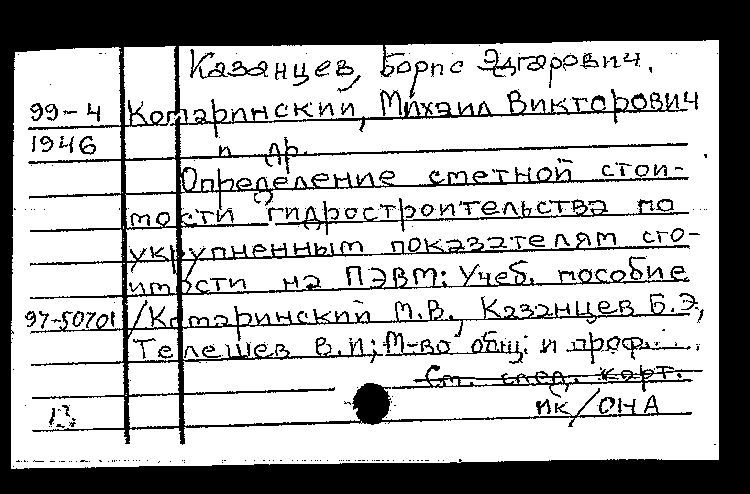 Казанцев, Борис Эдгарович.
99-4 Комаринский, Михаил Викторович
1946 и др.
Определение сметной стои-
мости гидростроительства по
укрупненным показателям сто-
имости на ПЭВМ: Учеб. пособие
97-50701 /Комаринский М.В., Казанцев Б.Э.,
Телешев В.И; М-во общ. и проф. ...
См. след. карт.
13 ик/ОНА